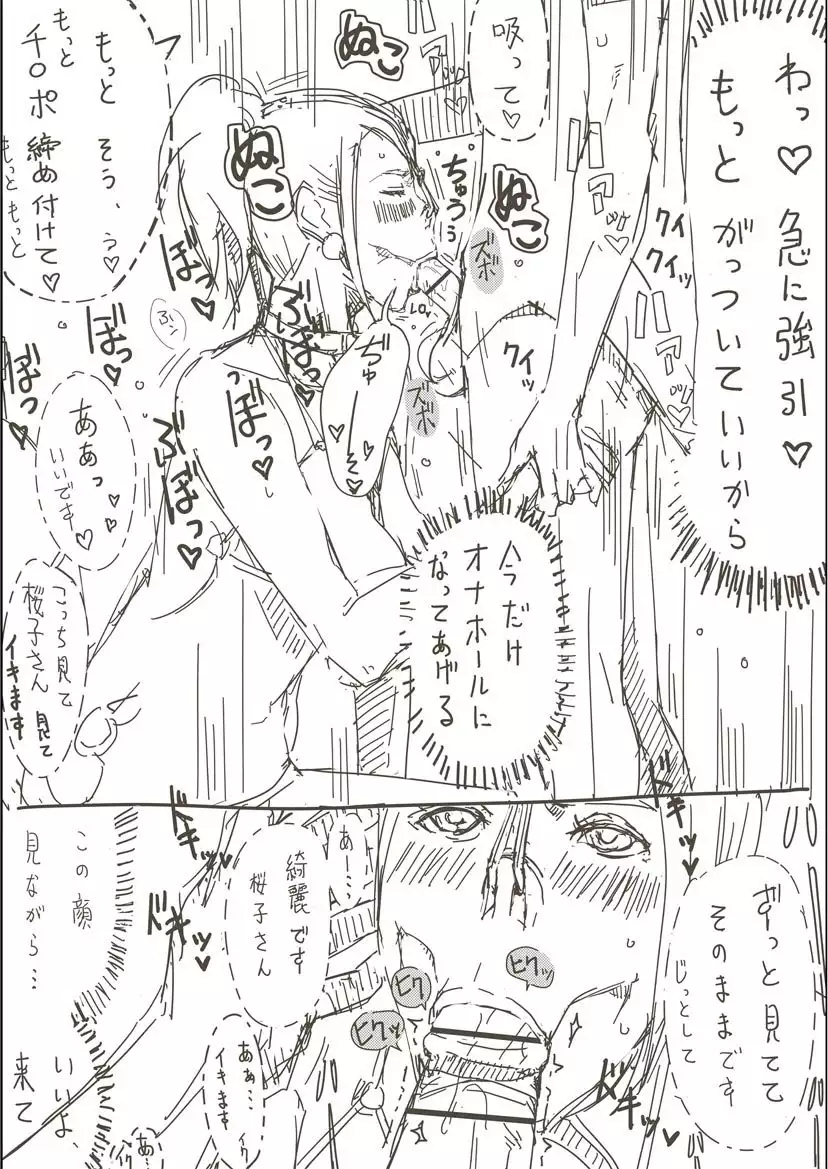 わっ♡
急に強引♡
もっと
がっついていいから
吸って♡
ぬこ
ぬこ
ぬこ
ちゅうぅ
ズボ
ズボ
ハァ
ハァ
クイクイッ
クイッ
もっと
そう、
う♡
もっと
チ○ポ
締め付けて♡
もっともっと
ぼっ♡
ぼっ♡
ぼっ♡
ぶぼぼ
ぢゅ
ぼっ♡
ぶぼっ♡
ああっ♡
いいです♡
こっち見て
桜子さん
見て
イキます
今だけ
オナホールに
なってあげる
ずっと見てて
そのままです
じっとして
ドキッ
ドキッ
ドキッ
あー…
綺麗です
桜子さん
ヒクッ
ヒク
ヒクッ
この顔
見ながら…
いいよ
来て
あぁ…
イキます
イク
あ…
イク